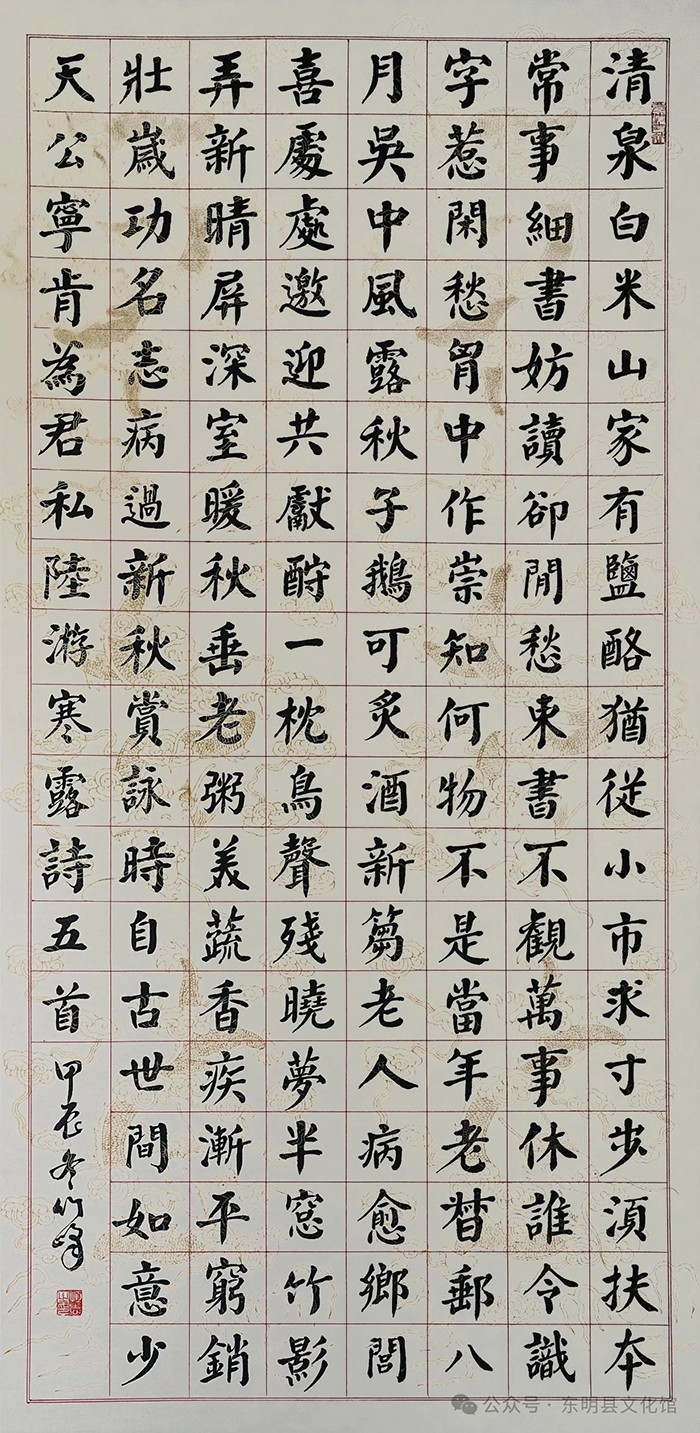 清泉白米山家有鹽酪猶從小市求寸步須扶本
常事細書妨讀卻閒愁束書不觀萬事休誰令識
字惹閑愁胷中作祟知何物不是當年老督郵八
月吳中風露秋子鵝可炙酒新篘老人病愈鄉閭
喜處處邀迎共獻酧一枕鳥聲殘曉夢半窓竹影
弄新晴屏深室暖秋垂老粥美蔬香疾漸平窮銷
壯歲功名志病過新秋賞詠時自古世間如意少
天公寧肯為君私陸游寒露詩五首
甲辰冬竹峰
公众号·东明县文化馆